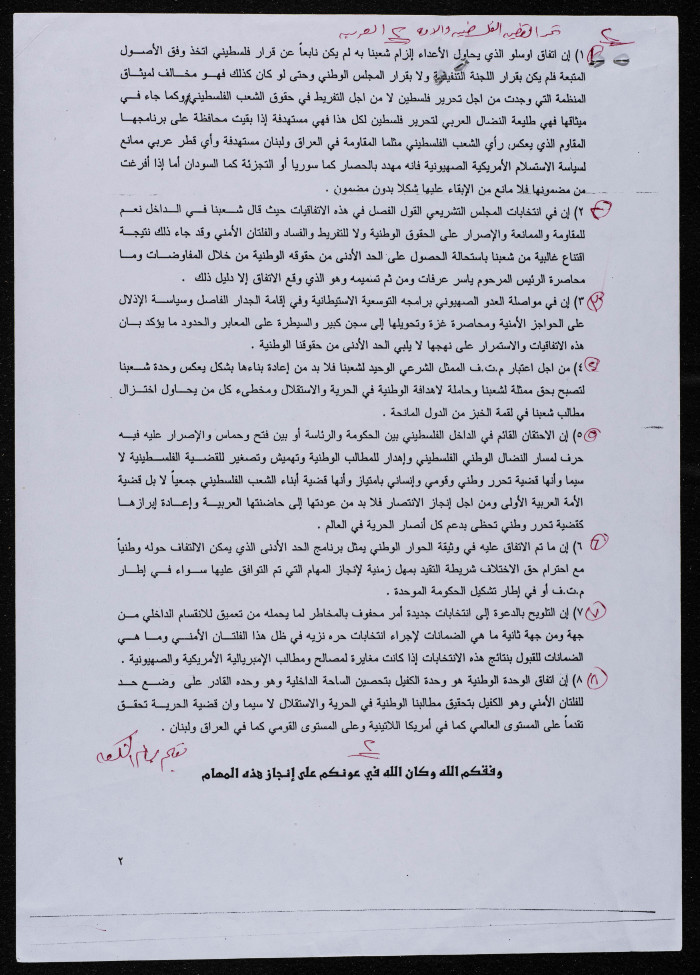 ٢
تمر القضية الفلسطينية والامة العربية
١) إن اتفاق اوسلو الذي يحاول الأعداء إلزام شعبنا به لم يكن نابعاً عن قرار فلسطيني اتخذ وفق الأصول
المتبعة فلم يكن بقرار اللجنة التنفيذية ولا بقرار المجلس الوطني وحتى لو كان كذلك فهو مخالف لميثاق
المنظمة التي وجدت من اجل تحرير فلسطين لا من اجل التفريط في حقوق الشعب الفلسطيني وكما جاء في
ميثاقها فهي طليعة النضال العربي لتحرير فلسطين لكل هذا فهي مستهدفة إذا بقيت محافظة على برنامجها
المقاوم الذي يعكس رأي الشعب الفلسطيني مثلما المقاومة في العراق ولبنان مستهدفة وأي قطر عربي ممانع
لسياسة الاستسلام الأمريكية الصهيونية فانه مهدد بالحصار كما سوريا أو التجزئة كما السودان أما إذا أفرغت
من مضمونها فلا مانع من الإبقاء عليها شكلا بدون مضمون .
٢) إن في انتخابات المجلس التشريعي القول الفصل في هذه الاتفاقيات حيث قال شعبنا في الداخل نعم
للمقاومة والممانعة والإصرار على الحقوق الوطنية ولا للتفريط والفساد والفلتان الأمني وقد جاء ذلك نتيجة
اقتناع غالبية من شعبنا باستحالة الحصول على الحد الأدنى من حقوقه الوطنية من خلال المفاوضات وما
محاصرة الرئيس المرحوم ياسر عرفات ومن ثم تسميمه وهو الذي وقع الاتفاق إلا دليل ذلك .
٣) إن في مواصلة العدو الصهيوني برامجه التوسعية الاستيطانية وفي إقامة الجدار الفاصل وسياسة الإذلال
على الحواجز الأمنية ومحاصرة غزة وتحويلها إلى سجن كبير والسيطرة على المعابر والحدود ما يؤكد بان
هذه الاتفاقيات والاستمرار على نهجها لا يلبي الحد الأدنى من حقوقنا الوطنية .
٤) من اجل اعتبار م.ت.ف الممثل الشرعي الوحيد لشعبنا فلا بد من إعادة بناءها بشكل يعكس وحدة شعبنا
لتصبح بحق ممثلة لشعبنا وحاملة لاهدافة الوطنية في الحرية والاستقلال ومخطىء كل من يحاول اختزال
مطالب شعبنا في لقمة الخبز من الدول المانحة .
٥) إن الاحتقان القائم في الداخل الفلسطيني بين الحكومة والرئاسة أو بين فتح وحماس والإصرار عليه فيه
حرف لمسار النضال الوطني الفلسطيني وإهدار للمطالب الوطنية وتهميش وتصغير للقضية الفلسطينية لا
سيما وأنها قضية تحرر وطني وقومي وإنساني بامتياز وأنها قضية أبناء الشعب الفلسطيني جمعياً لا بل قضية
الأمة العربية الأولى ومن اجل إنجاز الانتصار فلا بد من عودتها إلى حاضنتها العربية وإعادة إبرازها
كقضية تحرر وطني تحظى بدعم كل أنصار الحرية في العالم .
٦) إن ما تم الاتفاق عليه في وثيقة الحوار الوطني يمثل برنامج الحد الأدنى الذي يمكن الالتفاف حوله وطنياً
مع احترام حق الاختلاف شريطة التقيد بمهل زمنية لإنجاز المهام التي تم التوافق عليها سواء في إطار
م.ت.ف أو في إطار تشكيل الحكومة الموحدة .
٧) إن التلويح بالدعوة إلى انتخابات جديدة أمر محفوف بالمخاطر لما يحمله من تعميق للانقسام الداخلي من
جهة ومن جهة ثانية ما هي الضمانات لإجراء انتخابات حره نزيه في ظل هذا الفلتان الأمني وما هي
الضمانات للقبول بنتائج هذه الانتخابات إذا كانت مغايرة لمصالح ومطالب الإمبريالية الأمريكية والصهيونية .
٨) إن اتفاق الوحدة الوطنية هو وحدة الكفيل بتحصين الساحة الداخلية وهو وحده القادر على وضع حد
للفلتان الأمني وهو الكفيل بتحقيق مطالبنا الوطنية في الحرية والاستقلال لا سيما وان قضية الحرية تحقق
تقدماً على المستوى العالمي كما في أمريكا اللاتينية وعلى المستوى القومي كما في العراق ولبنان .
٢
وفقكم الله وكان الله في عونكم على إنجاز هذه المهام
٢